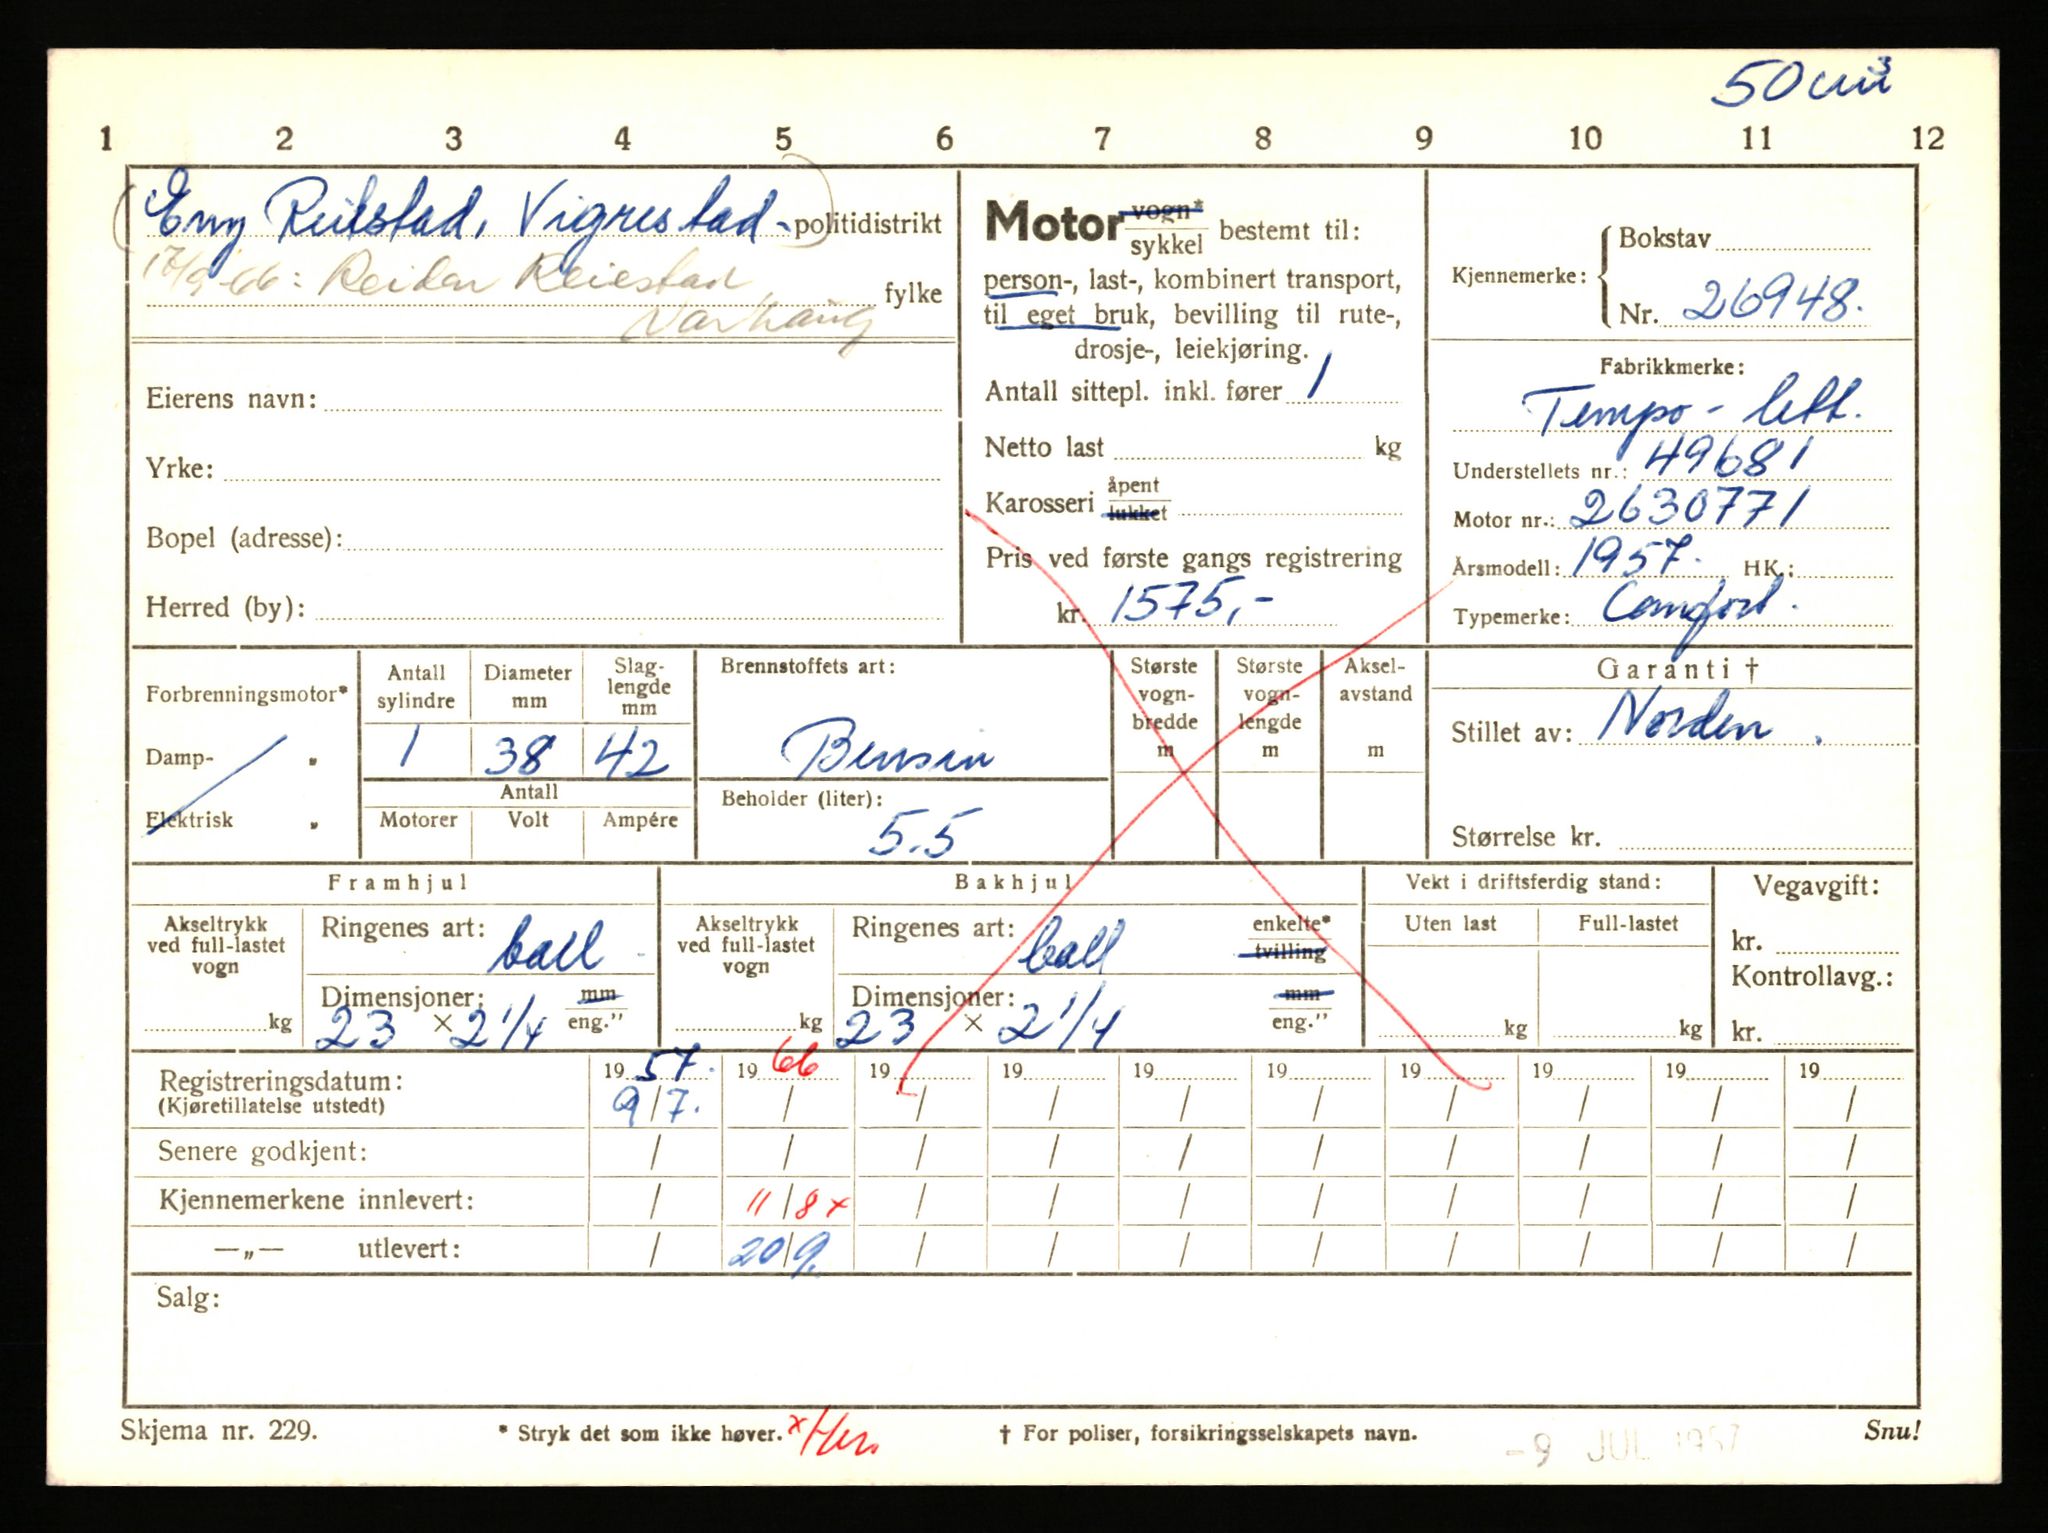 50 cm³
1 2 3 4 5 6 7 8 9 10 11 12
(Emy Reiestad, Vigrestad.) politidistrikt
17/9-66: Reidar Reiestad fylke
Varhaug
Eierens navn:
Yrke:
Bopel (adresse):
Herred (by):
Motor vogn*
sykkel bestemt til:
person-, last-, kombinert transport,
til eget bruk, bevilling til rute-,
drosje-, leiekjøring.
Antall sittepl. inkl. fører 1
Netto last kg
Karosseri åpent
lukket
Pris ved første gangs registrering
kr. 1575,-
Kjennemerke: Bokstav
Nr. 26948.
Fabrikkmerke:
Tempo - lett.
Understellets nr.: 49681
Motor nr.: 2630771
Årsmodell: 1957. HK.:
Typemerke: Comfort.
Forbrenningsmotor*
Damp- „
Elektrisk „
Antall sylindre Diameter mm Slag-lengde mm
1 38 42
Antall
Motorer Volt Ampére
Brennstoffets art:
Bensin
Beholder (liter):
5.5
Største vogn-bredde m
Største vogn-lengde m
Aksel-avstand m
Garanti †
Stillet av: Norden.
Størrelse kr.
Framhjul
Akseltrykk
ved full-lastet
vogn
kg
Ringenes art: ball
Dimensjoner: mm
23 × 2 1/4 eng."
Bakhjul
Akseltrykk
ved full-lastet
vogn
kg
Ringenes art: ball enkelte*
tvilling
Dimensjoner: mm
23 × 2 1/4 eng."
Vekt i driftsferdig stand:
Uten last Full-lastet
kg kg
Vegavgift:
kr.
Kontrollavg.:
kr.
Registreringsdatum: 19 57. 19 66 19 19 19 19 19 19 19 19
(Kjøretillatelse utstedt) 9/7. / / / / / / / / /
Senere godkjent: / / / / / / / / / /
Kjennemerkene innlevert: / 11/8 x / / / / / / / /
—„— utlevert: / 20/9. / / / / / / / /
Salg:
Skjema nr. 229. * Stryk det som ikke høver. x/ † For poliser, forsikringsselskapets navn. -9 JUL 1957 Snu!